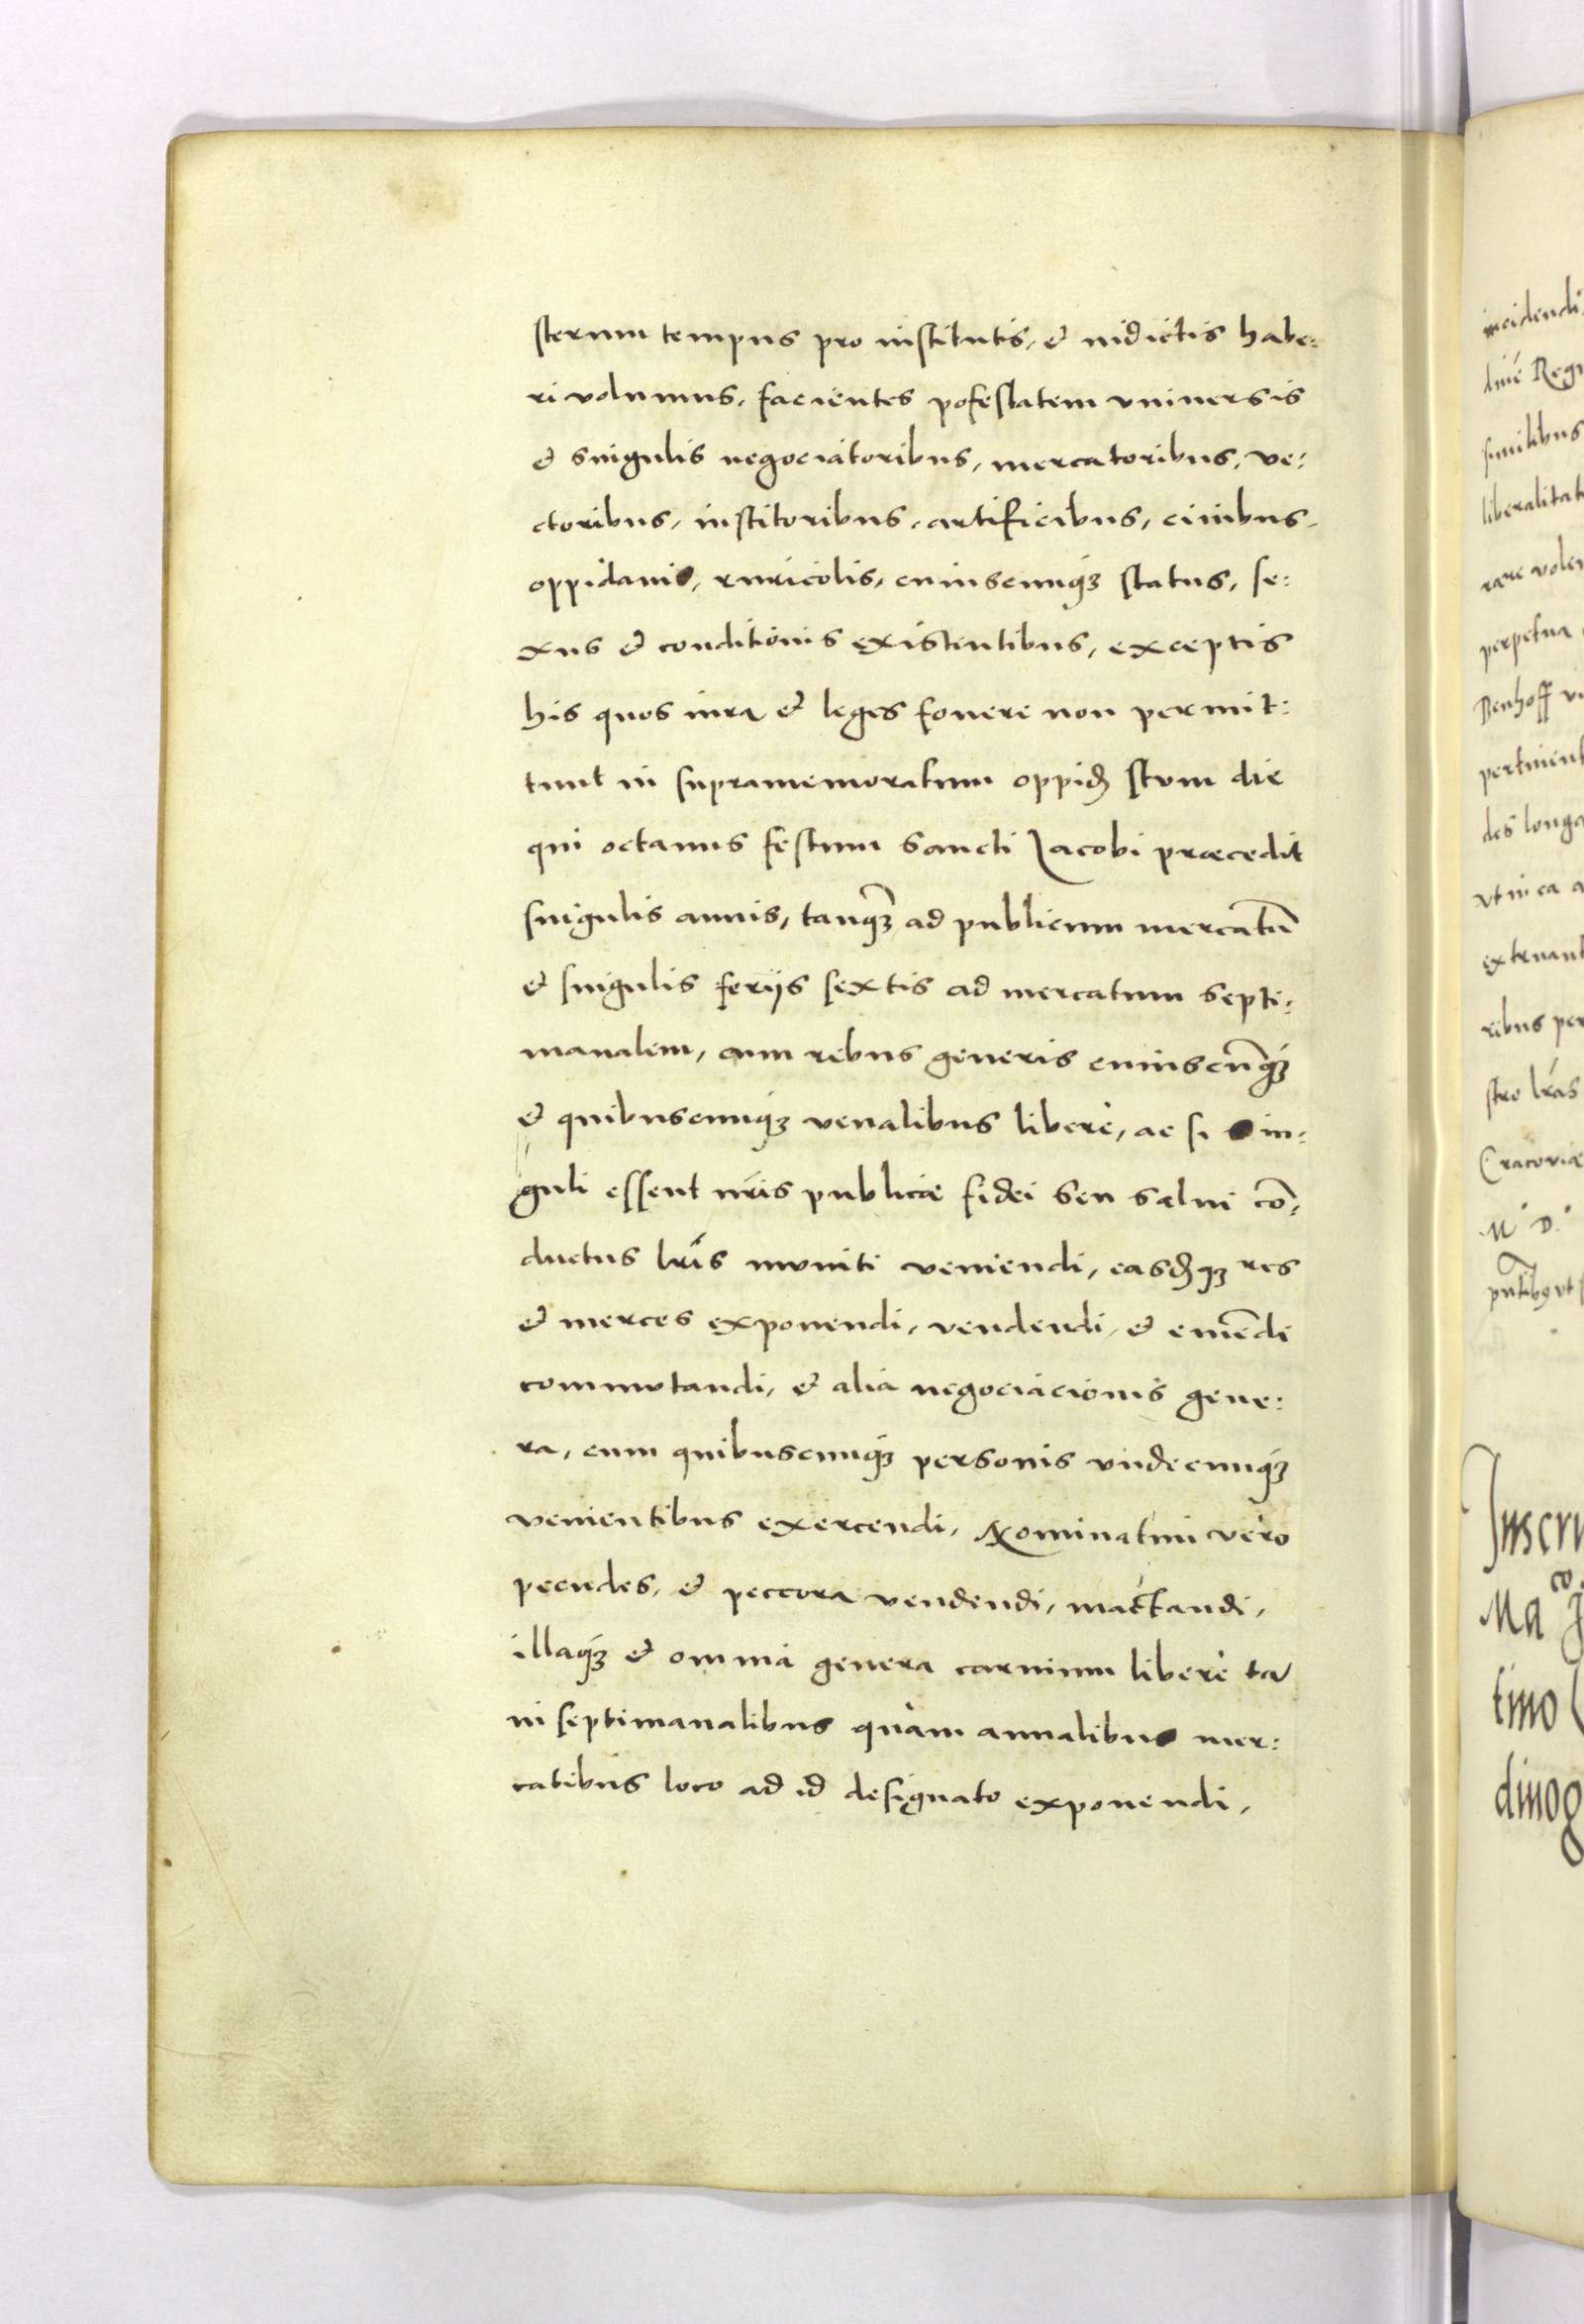 sternum tempus pro institutis, et indictis habe:
ri volumus, facientes potestatem vniuersis
et singulis negociatoribus, mercatoribus, ve:
ctoribus, institoribus, artificibus, ciuibus,
oppidanis, ruricolis, cuiuscunqꝫ status, se:
xus et conditionis existentibus, exceptis
his quos iura et leges fouere non permit:
tunt in supramemoratum oppidꝫ stvm die
qui octauus festum Sancti Jacobi præcedit
singulis annis, tanqꝫ ad publicum mercatū
et singulis ferijs sextis ad mercatum septi:
manalem, cum rebus generis cuiuscūqꝫ
et quibuscunqꝫ venalibus libere, ac si sin:
guli essent nr̄is publicæ fidei seu salui cō,
ductus lr̄is mvniti veniendi, easdꝫqꝫ res
et merces exponendi, vendendi, et emēdi
commvtandi, et alia negociacionis gene:
ra, cum quibuscunqꝫ personis vndecunqꝫ
venientibus exercendi, Nominatim vero
pecudes, et peccora vendendi, mactandi,
illaqꝫ et omnia genera carnium libere tā
in septimanalibus quàm annalibus mer:
catibus loco ad id designato exponendi,
incidendi,
similibus
liberalitat
rare volen
perpetua
Benhoff
pertinent
des longa
vt in ea a
extruant
ribus per
stro lr̄as
Cracoviæ
M D
Inscri
Ma
timo
dinog